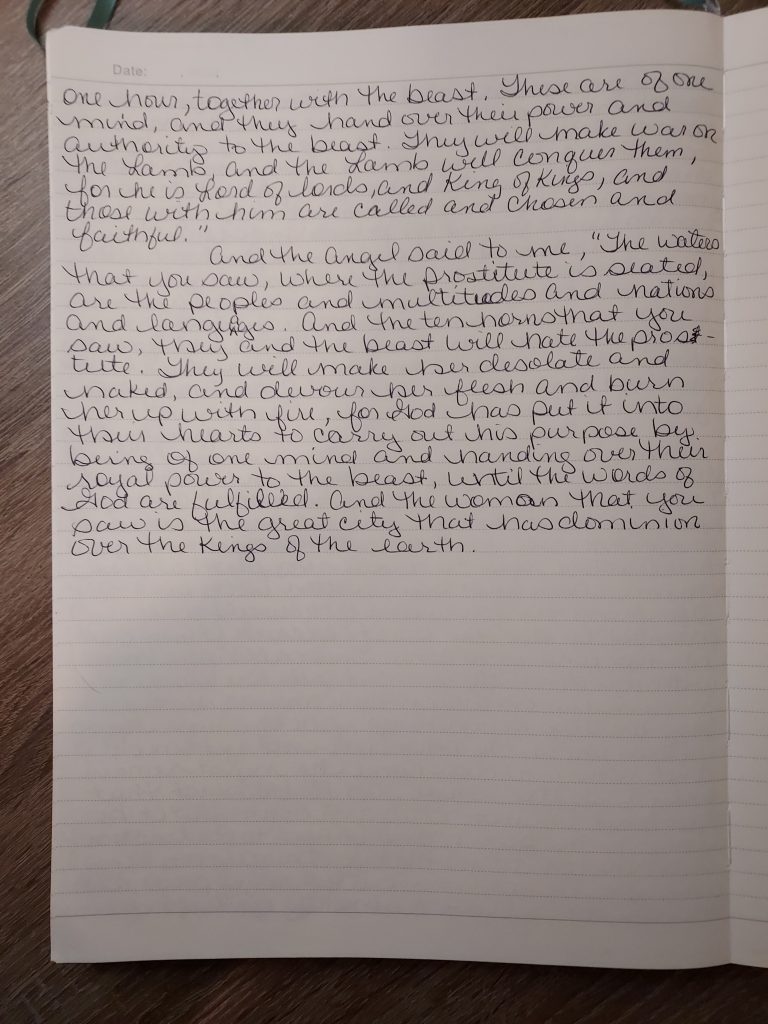 Date:
one hour, together with the beast. These are of one
mind, and they hand over their power and
authority to the beast. They will make war on
the Lamb, and the Lamb will conquer them,
for he is Lord of lords, and King of Kings, and
those with him are called and chosen and
faithful."
And the angel said to me, "The waters
that you saw, where the prostitute is seated,
are the peoples and multitudes and nations
and languages. And the ten horns that you
saw, they and the beast will hate the prost-
tute. They will make her desolate and
naked, and devour her flesh and burn
her up with fire, for God has put it into
their hearts to carry out his purpose by
being of one mind and handing over their
royal power to the beast, until the words of
God are fulfilled. And the woman that you
saw is the great city that has dominion
over the Kings of the earth.